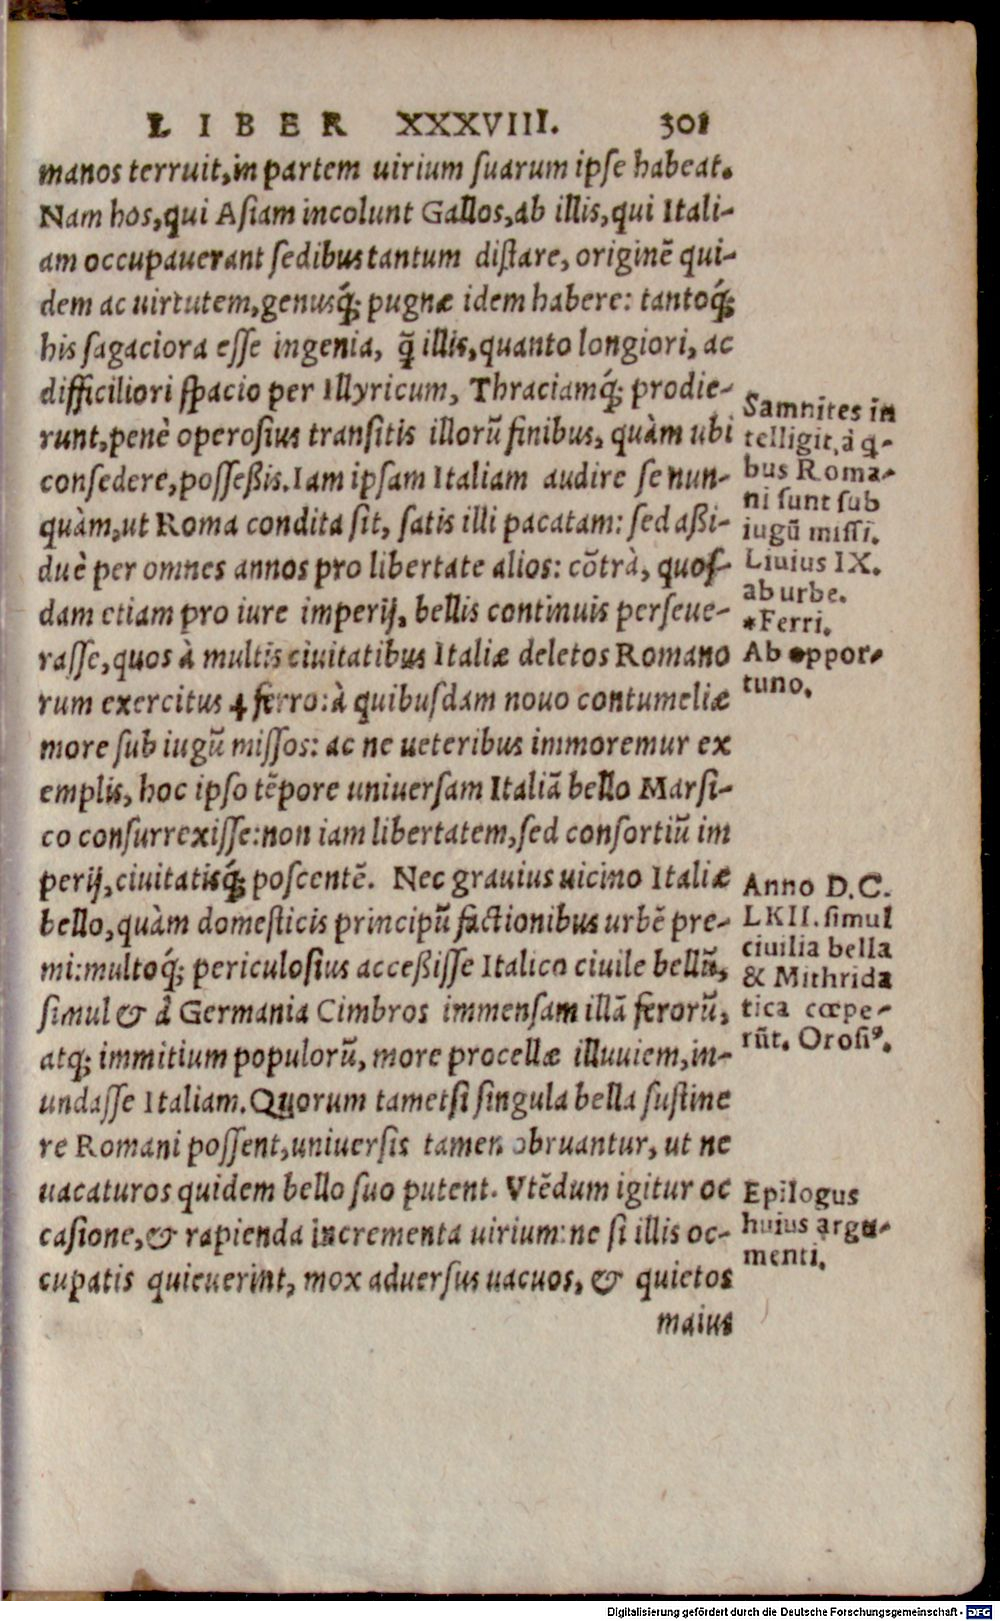 LIBER XXXVIII. 301
manos terruit, in partem uirium ſuarum ipſe habeat.
Nam hos, qui Aſiam incolunt Gallos, ab illis, qui Itali-
am occupauerant ſedibus tantum diſtare, originē qui-
dem ac uirtutem, genusq́; pugnæ idem habere: tantoq́;
his ſagaciora eſſe ingenia, q̃ illis, quanto longiori, ac
difficiliori ſpacio per Illyricum, Thraciamq́; prodie-
runt, penè operoſius tranſitis illorū finibus, quàm ubi
conſedere, poſſeßis. Iam ipſam Italiam audire ſe nun-
quàm, ut Roma condita ſit, ſatis illi pacatam: ſed aßi-
duè per omnes annos pro libertate alios: cōtrà, quoſ-
dam etiam pro iure imperij, bellis continuis perſeue-
raſſe, quos à multis ciuitatibus Italiæ deletos Romano
rum exercitus ⁂ ferro: à quibuſdam nouo contumeliæ
more ſub iugū miſſos: ac ne ueteribus immoremur ex
emplis, hoc ipſo tēpore uniuerſam Italiā bello Marſi-
co conſurrexiſſe: non iam libertatem, ſed conſortiū im
perij, ciuitatisq́; poſcentē. Nec grauius uicino Italiæ
bello, quàm domeſticis principū factionibus urbē pre-
mi: multoq́; periculoſius acceßiſſe Italico ciuile bellū,
ſimul & à Germania Cimbros immenſam illā ferorū,
atq; immitium populorū, more procellæ illuuiem, in-
undaſſe Italiam. Quorum tametſi ſingula bella ſuſtine
re Romani poſſent, uniuerſis tamen obruantur, ut ne
uacaturos quidem bello ſuo putent. Vtēdum igitur oc
caſione, & rapienda incrementa uirium: ne ſi illis oc-
cupatis quieuerint, mox aduerſus uacuos, & quietos
maius
Samnites in
telligit, à q-
bus Roma-
ni ſunt ſub
iugū miſſi.
Liuius IX.
ab urbe.
*Ferri.
Ab oppor-
tuno.
Anno D.C.
LKII. ſimul
ciuilia bella
& Mithrida
tica cœpe-
rūt. Oroſiꝰ.
Epilogus
huius argu-
menti.
Digitalisierung gefördert durch die Deutsche Forschungsgemeinschaft - DFG